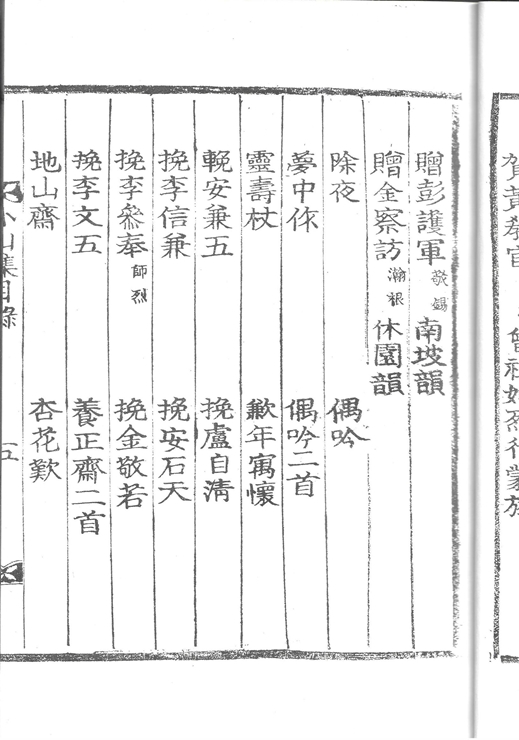 賀黃教官
曾祀妣忌行蒙族
贈彭護軍敬錫南坡韻
贈金察訪瀚根休園韻
除夜 偶吟
夢中作 偶吟二首
靈壽杖 歉年寓懷
輓安兼五 挽盧自淸
挽李信兼 挽安石天
挽李參奉師烈 挽金敬若
挽李文五 養正齋二首
地山齋 杏花歎
小山集目錄 五